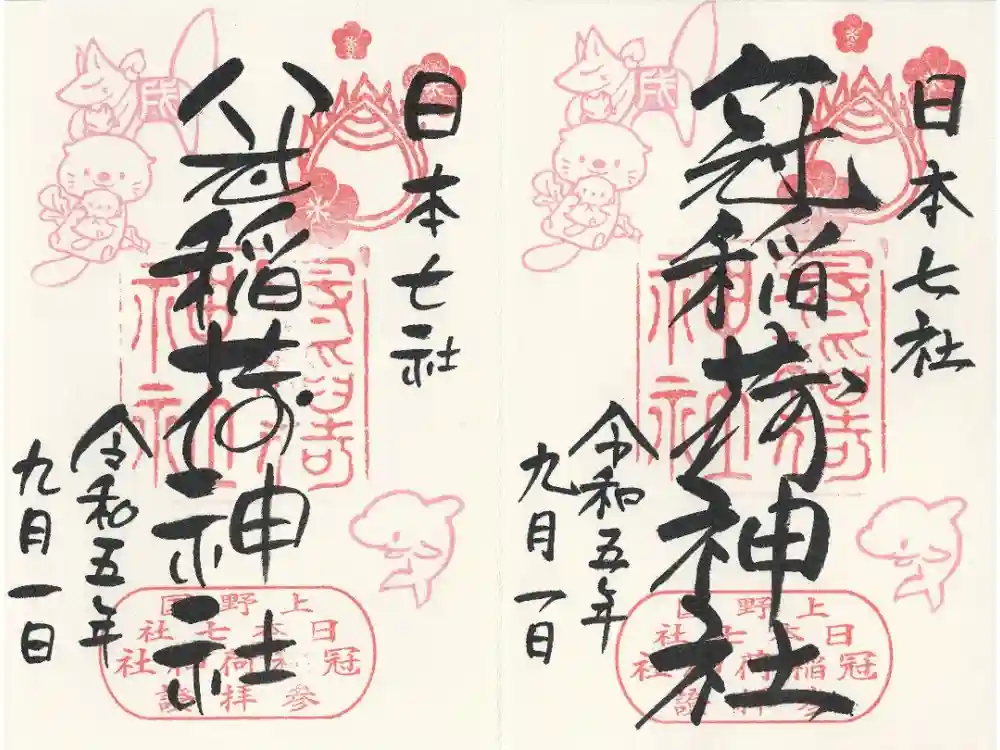 日本七社
冠稲荷神社
令和五年
九月一日
上野国
日本七社
冠稲荷神社
參拝證
日本七社
冠稲荷神社
令和五年
九月一日
上野国
日本七社
冠稲荷神社
參拝證